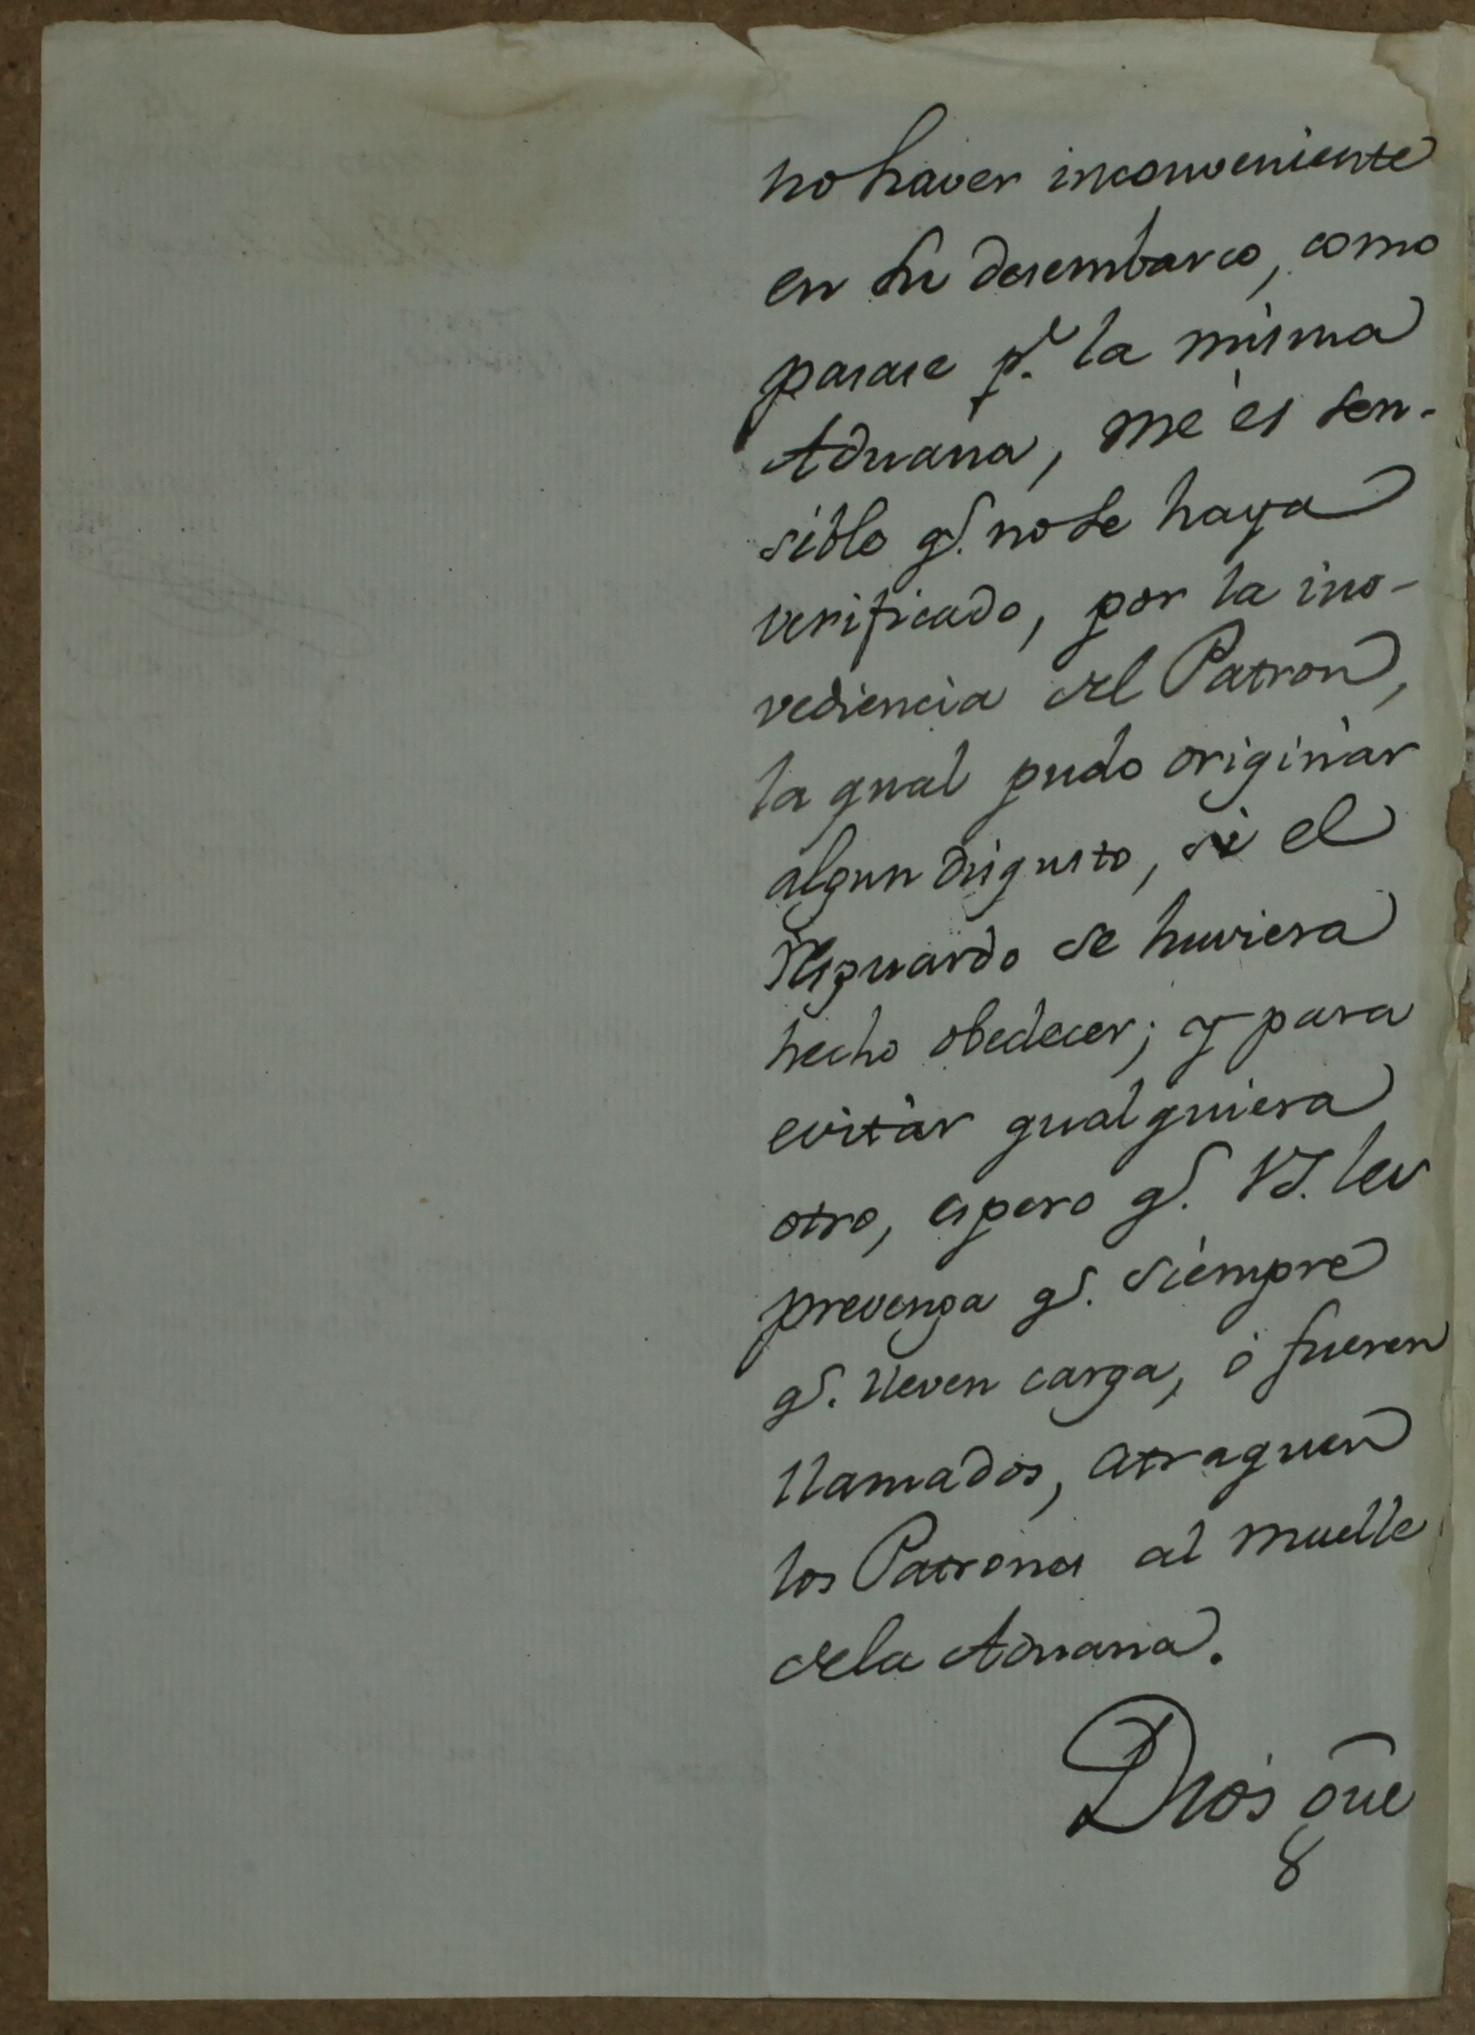 no haver inconveniente
en su desembarco, como
pasase pr. la misma
Aduana, me es sen-
sible qe. no se haya
verificado, por la ino-
vediencia del Patron,
la qual pudo originar
algun disgusto, si el
Resguardo se huviera
hecho obedecer; y para
evitar qualquiera
otro, espero qe. VS. les
prevenga qe. siempre
qe. lleven carga, ó fueren
llamados, atraquen
los Patrones al muelle
dela Aduana.
Dios gue